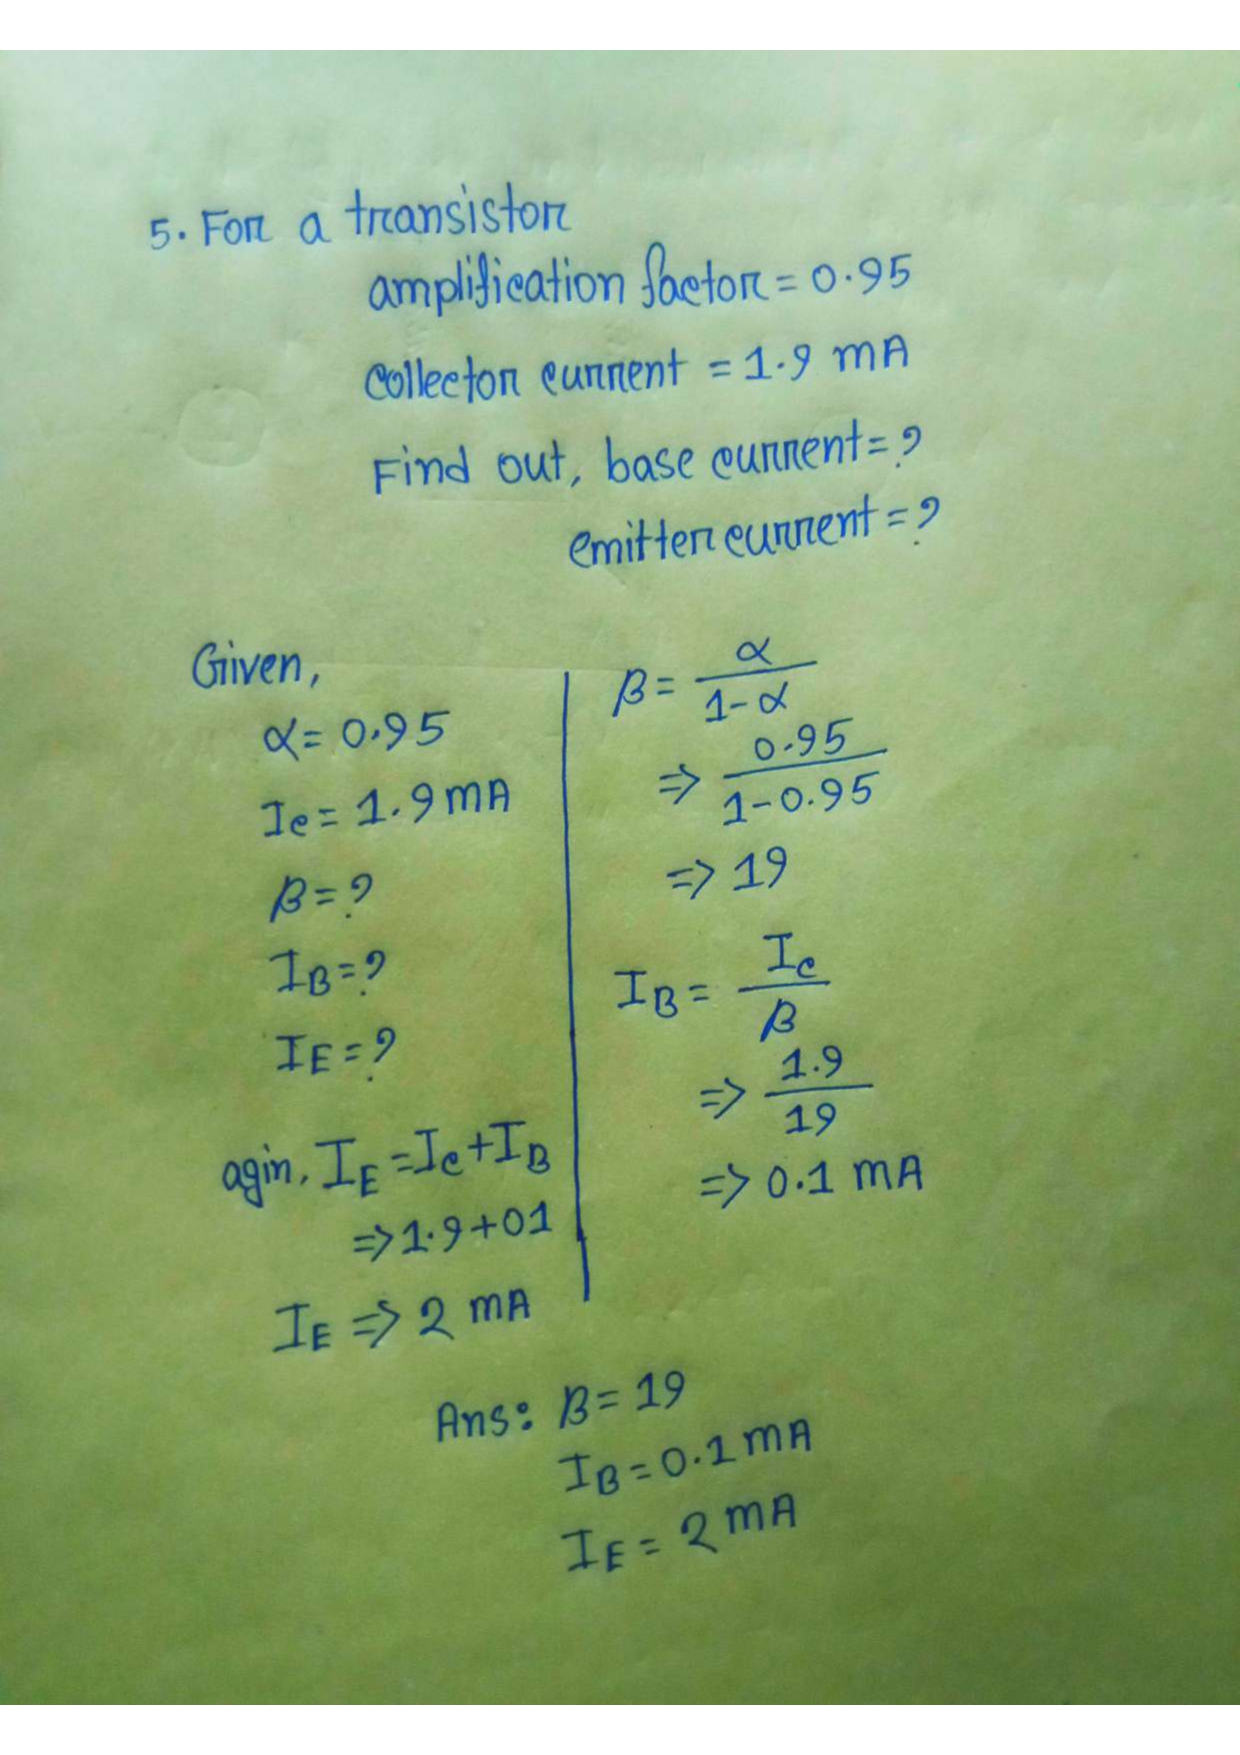 5. For a transistor
amplification factor = 0.95
collector current = 1.9 mA
Find out, base current = ?
emitter current = ?
Given,
α = 0.95
Ic = 1.9 mA
β = ?
IB = ?
IE = ?
agin, IE = Ic + IB
=> 1.9 + 01
IE => 2 mA
β = α / 1 - α
=> 0.95 / 1 - 0.95
=> 19
IB = Ic / β
=> 1.9 / 19
=> 0.1 mA
Ans: β = 19
IB = 0.1 mA
IE = 2 mA